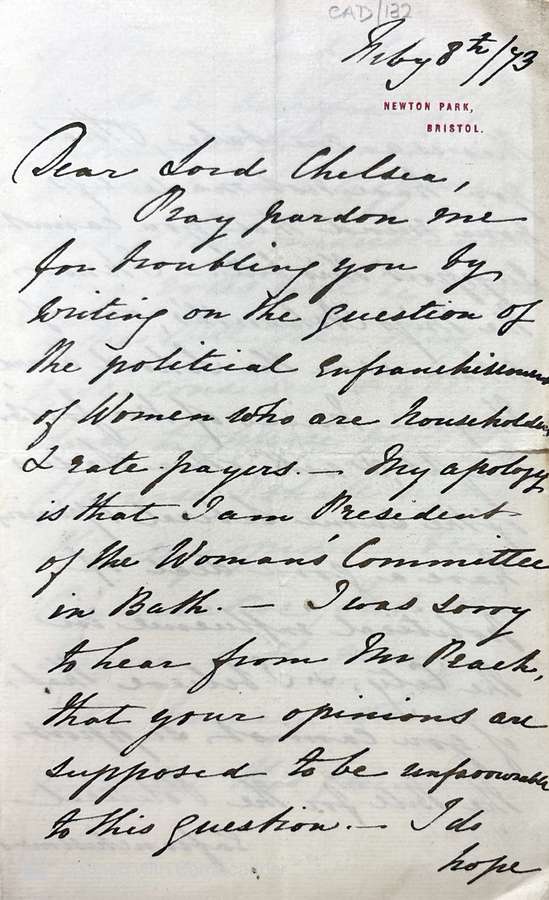 CAD/132
Feby 8th/73
NEWTON PARK,
BRISTOL.
Dear Lord Chelsea,
Pray pardon me
for troubling you by
writing on the question of
the political enfranchisement
of Women who are householders
& rate-payers. — My apology
is that I am President
of the Woman's Committee
in Bath. — I was sorry
to hear from Mr Peach,
that your opinions are
supposed to be unfavourable
to this question. — I do
hope